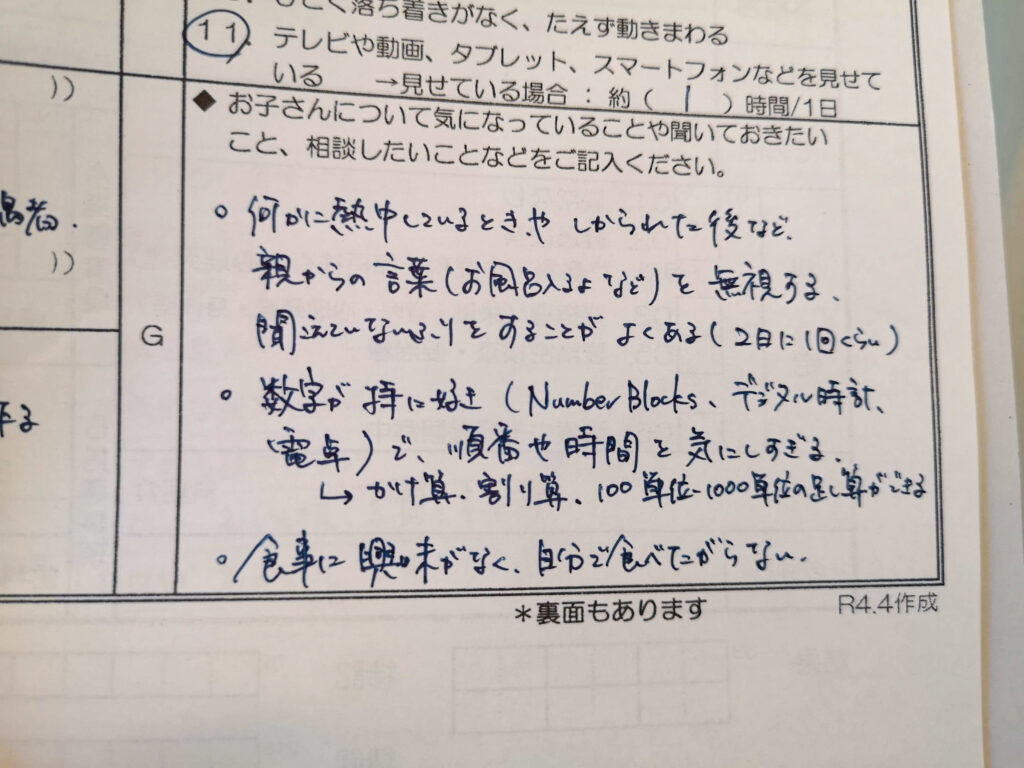 ひどく落ち着きがなく、たえず動きまわる
11. テレビや動画、タブレット、スマートフォンなどを見せて
いる →見せている場合：約（ 1 ）時間/1日
))
◆ お子さんについて気になっていることや聞いておきたい
こと、相談したいことなどをご記入ください。
))
G
。何かに熱中しているときや しかられた後など、
親からの言葉(お風呂入るよなど)を無視する、
聞こえていないふりをすることが よくある(2日に1回くらい)
。数字が 非常に好き (Number Blocks、デジタル時計、
電卓)で、順番や時間を気にしすぎる。
↳ かけ算、割り算、100単位-1000単位の足し算ができる
。食事に興味がなく、自分で食べたがらない。
＊裏面もあります
R4.4作成